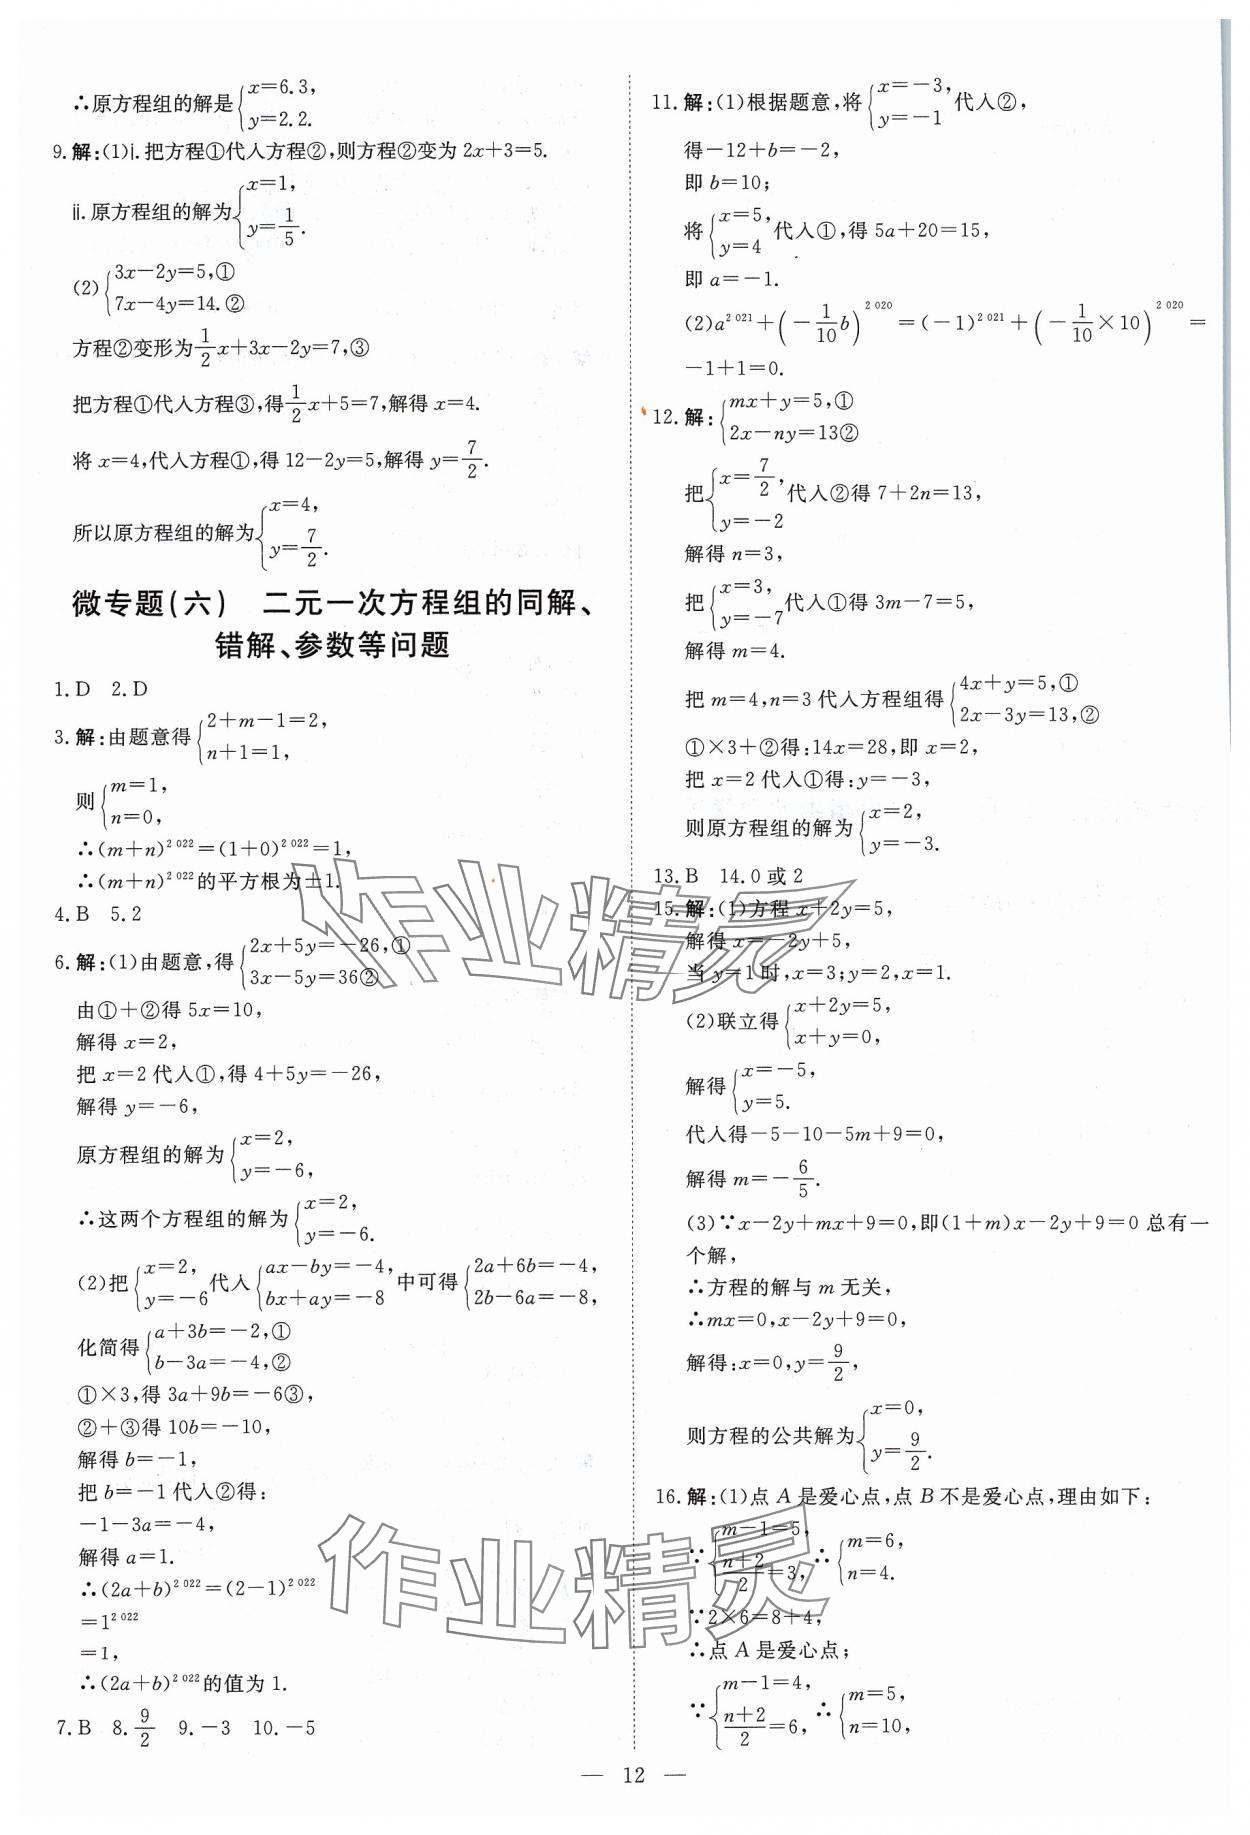 ∴原方程组的解是{x=6.3, y=2.2.
9.解:(1)ⅰ.把方程①代入方程②,则方程②变为 2x+3=5.
ⅱ.原方程组的解为{x=1, y=1/5.
(2){3x-2y=5,① 7x-4y=14.②
方程②变形为1/2x+3x-2y=7,③
把方程①代入方程③,得1/2x+5=7,解得 x=4.
将 x=4,代入方程①,得 12-2y=5,解得 y=7/2.
所以原方程组的解为{x=4, y=7/2.
微专题(六) 二元一次方程组的同解、
错解、参数等问题
1.D 2.D
3.解:由题意得{2+m-1=2, n+1=1,
则{m=1, n=0,
∴(m+n)^2 022=(1+0)^2 022=1,
∴(m+n)^2 022的平方根为±1.
4.B 5.2
6.解:(1)由题意,得{2x+5y=-26,① 3x-5y=36②
由①+②得 5x=10,
解得 x=2,
把 x=2 代入①,得 4+5y=-26,
解得 y=-6,
原方程组的解为{x=2, y=-6,
∴这两个方程组的解为{x=2, y=-6.
(2)把{x=2, y=-6代入{ax-by=-4, bx+ay=-8中可得{2a+6b=-4, 2b-6a=-8,
化简得{a+3b=-2,① b-3a=-4,②
①×3,得 3a+9b=-6③,
②+③得 10b=-10,
解得 b=-1,
把 b=-1 代入②得:
-1-3a=-4,
解得 a=1.
∴(2a+b)^2 022=(2-1)^2 022
=1^2 022
=1,
∴(2a+b)^2 022的值为 1.
7.B 8.9/2 9.-3 10.-5
11.解:(1)根据题意,将{x=-3, y=-1 代入②,
得-12+b=-2,
即 b=10;
将{x=5, y=4 代入①,得 5a+20=15,
即 a=-1.
(2)a^2 021+(-1/10b)^2 020=(-1)^2 021+(-1/10×10)^2 020=
-1+1=0.
12.解:{mx+y=5,① 2x-ny=13②
把{x=7/2, y=-2 代入②得 7+2n=13,
解得 n=3,
把{x=3, y=-7代入①得 3m-7=5,
解得 m=4.
把 m=4,n=3 代入方程组得{4x+y=5,① 2x-3y=13,②
①×3+②得:14x=28,即 x=2,
把 x=2 代入①得:y=-3,
则原方程组的解为{x=2, y=-3.
13.B 14.0 或 2
15.解:(1)方程 x+2y=5,
解得 x=-2y+5,
当 y=1 时,x=3;y=2,x=1.
(2)联立得{x+2y=5, x+y=0,
解得{x=-5, y=5.
代入得-5-10-5m+9=0,
解得 m=-6/5.
(3)∵x-2y+mx+9=0,即(1+m)x-2y+9=0 总有一
个解,
∴方程的解与 m 无关,
∴mx=0,x-2y+9=0,
解得:x=0,y=9/2,
则方程的公共解为{x=0, y=9/2.
16.解:(1)点 A 是爱心点,点 B 不是爱心点,理由如下:
∵{m-1=5, (n+2)/2=3, ∴{m=6, n=4.
∵2×6=8+4,
∴点 A 是爱心点;
∵{m-1=4, (n+2)/2=6, ∴{m=5, n=10,
— 12 —
作业精灵
作业精灵